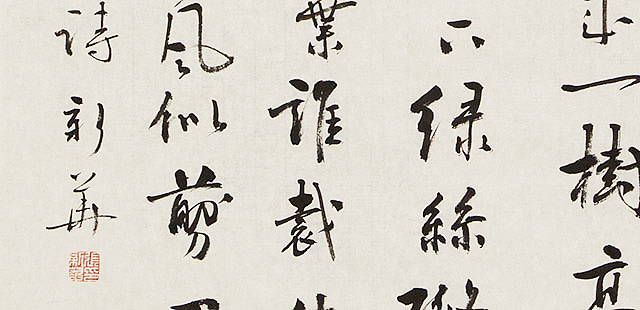 一樹高
下綠絲
葉誰裁
風似剪
詩新華